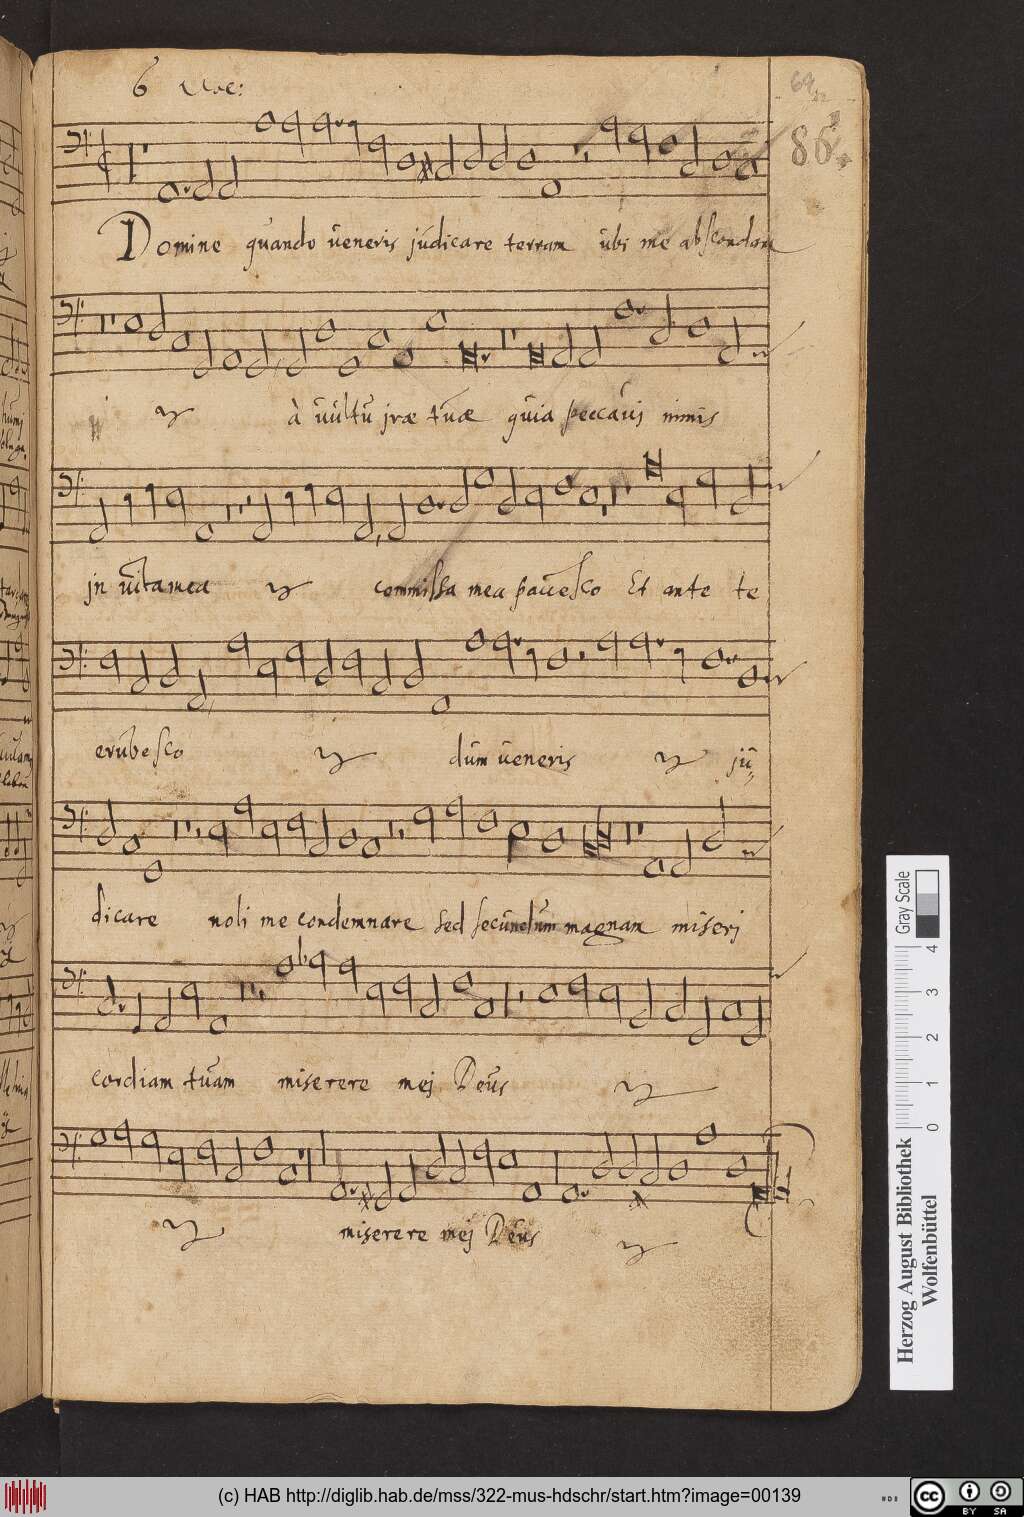 6 Voc:
69
86
Domine quando veneris judicare terram ubi me abscondam
à vultu iræ tuæ quia peccavi nimis
in vita mea commissa mea pavesco Et ante te
erubesco dum veneris ju,,
dicare noli me condemnare sed secundum magnam miseri
cordiam tuam miserere mei Deus
miserere mei Deus
Gray Scale
0 1 2 3 4
Herzog August Bibliothek
Wolfenbüttel
(c) HAB http://diglib.hab.de/mss/322-mus-hdschr/start.htm?image=00139
cc
BY SA